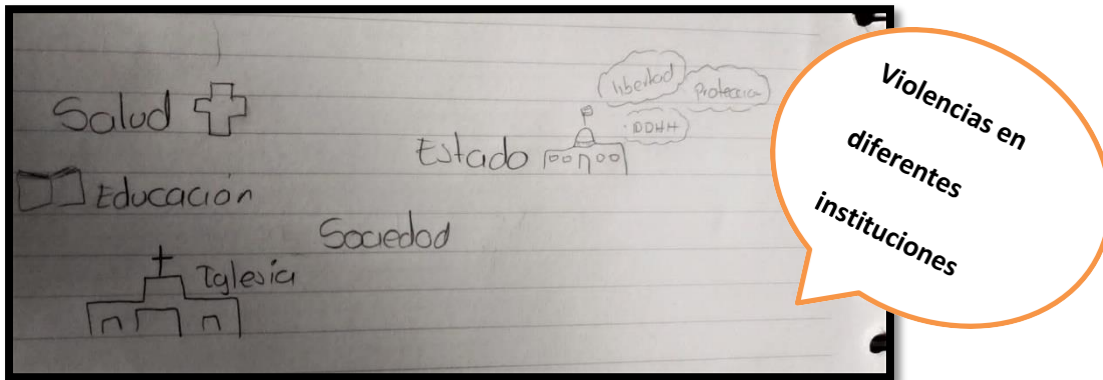 Salud
libertad
Protección
DDHH
Estado
Educación
Sociedad
Iglesia
Violencias en
diferentes
instituciones